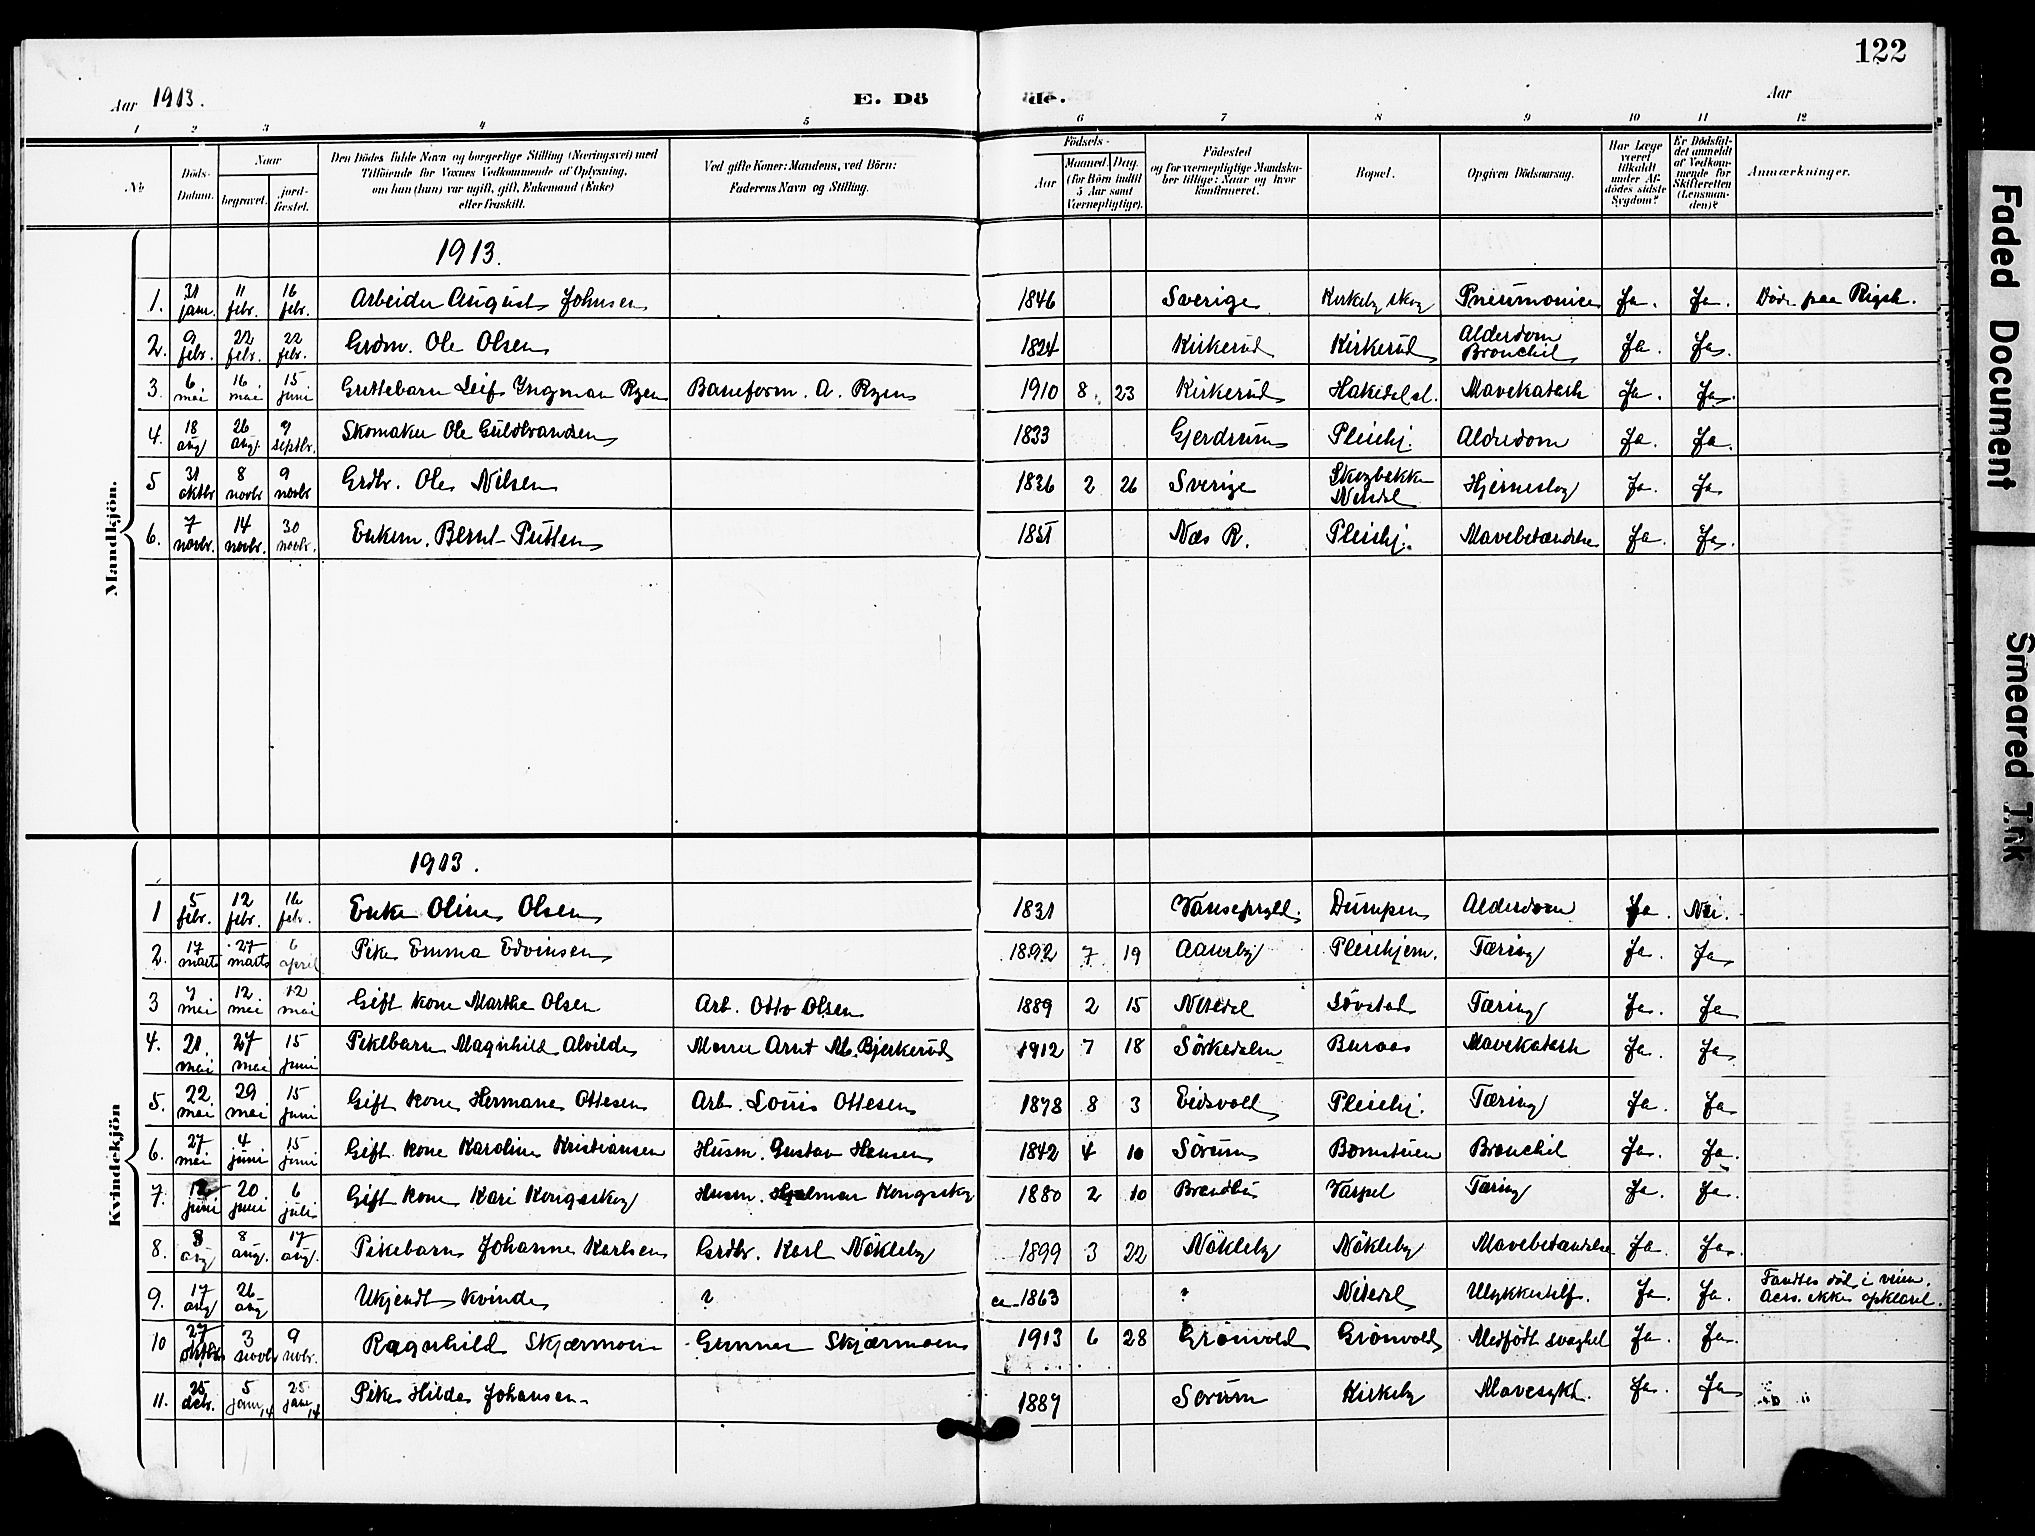 122
Aar 1913.
E. Döde.
Aar
1 2 3 4 5 6 7 8 9 10 11 12
No
Döds-Datum.
Naar
begravet.
jordfæstet.
Den Dödes fulde Navn og borgerlige Stilling (Næringsvei) med
Tilföiende for Voxnes Vedkommende af Oplysning,
om han (hun) var ugift, gift, Enkemand (Enke)
eller fraskilt.
Ved gifte Koner: Mandens, ved Börn:
Faderens Navn og Stilling.
Födsels-
Aar
Maaned. Dag.
(for Börn indtil
5 Aar samt
Værnepligtige).
Födested
og for værnepligtige Mandska-
ber tillige: Naar og hvor
konfirmeret.
Bopæl.
Opgiven Dödsaarsag.
Har Læge
været
tilkaldt
under Af-
dödes sidste
Sygdom?
Er Dödsfal-
det anmeldt
af Vedkom-
mende for
Skifteretten
(Lensman-
den)?
Anmærkninger.
Mandkjön.
1913.
1. 31 jan. 11 febr. 16 febr. Arbeider August Johnsen 1846 Sverige Kirkeby skog Pneumonice Ja. Ja. Döde paa Rigsh.
2. 9 febr. 22 febr. 22 febr. Grdm. Ole Olsen 1824 Kirkerud Kirkerud Alderdom Bronchit Ja. Ja.
3. 6 mai 16 mai 15 juni Guttebarn Leif Ingman Ryen Baneform. A. Ryen 1910 8. 23 Kirkerud Hakedal st. Mavekatarh Ja. Ja.
4. 18 aug 26 aug. 7 septbr. Skomaker Ole Guldbrandsen 1833 Gjerdrum Pleiehj. Alderdom Ja. Ja.
5 31 oktbr 8 novbr 9 novbr Grdbr. Ole Nilsen 1836 2 26 Sverige Skogbakken Nitedal Hjerneslag Ja. Ja
6. 7 novbr. 14 novbr. 30 novbr. Enkem. Bernt Putten 1851 Næs R. Pleiehj. Mavebetændelse Ja. Ja.
Kvindekjön
1913.
1 5 febr. 12 febr. 16 febr. Enke Oline Olsen 1831 Dumpen Alderdom Ja. Nei.
2. 17 marts 27 marts 6 april Pike Emma Edvinsen 1892 7 19 Aaneby Pleiehjem. Tæring Ja. Ja
3 7 mai 12 mai 12 mai Gift kone Marthe Olsen Arb. Otto Olsen 1889 2 15 Nitedal Sövstad Tæring Ja. Ja
4. 21. mai 27 mai 15 juni Pikebarn Magnhild Alvilde Murer Arnt M. Bjerkerud 1912 7 18 Sörkedalen Buraas Mavekatarh Ja. Ja
5. 22 mai 29 mai 15 juni Gift kone Hermane Ottesen Arb. Louis Ottesen 1878 8 3 Eidsvold Pleiehj. Tæring Ja. Ja
6. 27 mai 4 juni 15 juni Gift kone Karoline Kristiansen Husm. Gustav Hansen 1842 4 10 Sörum Bomstuen Bronchit Ja. Ja.
7. 12 juni 20 juni 6 juli Gift kone Kari Kongsskog Husm. Hjalmar Kongsskog 1880 2 10 Brandbu Varpet Tæring Ja. Ja.
8. 3 aug 8 aug. 17 aug. Pikebarn Johanne Karlsen Grdbr. Karl Nökleby 1899 3 22 Nökleby Nökleby Mavebetændelse Ja. Ja.
9. 17 aug 26 aug Ukjendt kvinde ? ca 1863 " Nitedal Ulykkestilf. Ja. Ja. Fandtes död i veien. Aars. ikke opklaret.
10 27 oktbr 3 novbr 9 nvbr. Ragnhild Skjærmoen Gunnar Skjærmoen 1913 6 28 Grönvold Grönvold Medfödt svaghet Ja. Ja.
11. 25 debr. 5 jan 14 25 jan 14 Pike Hilda Johansen 1889 Sorum Kirkeby Mavesykd. Ja. Ja
Faded Document
Smeared Ink